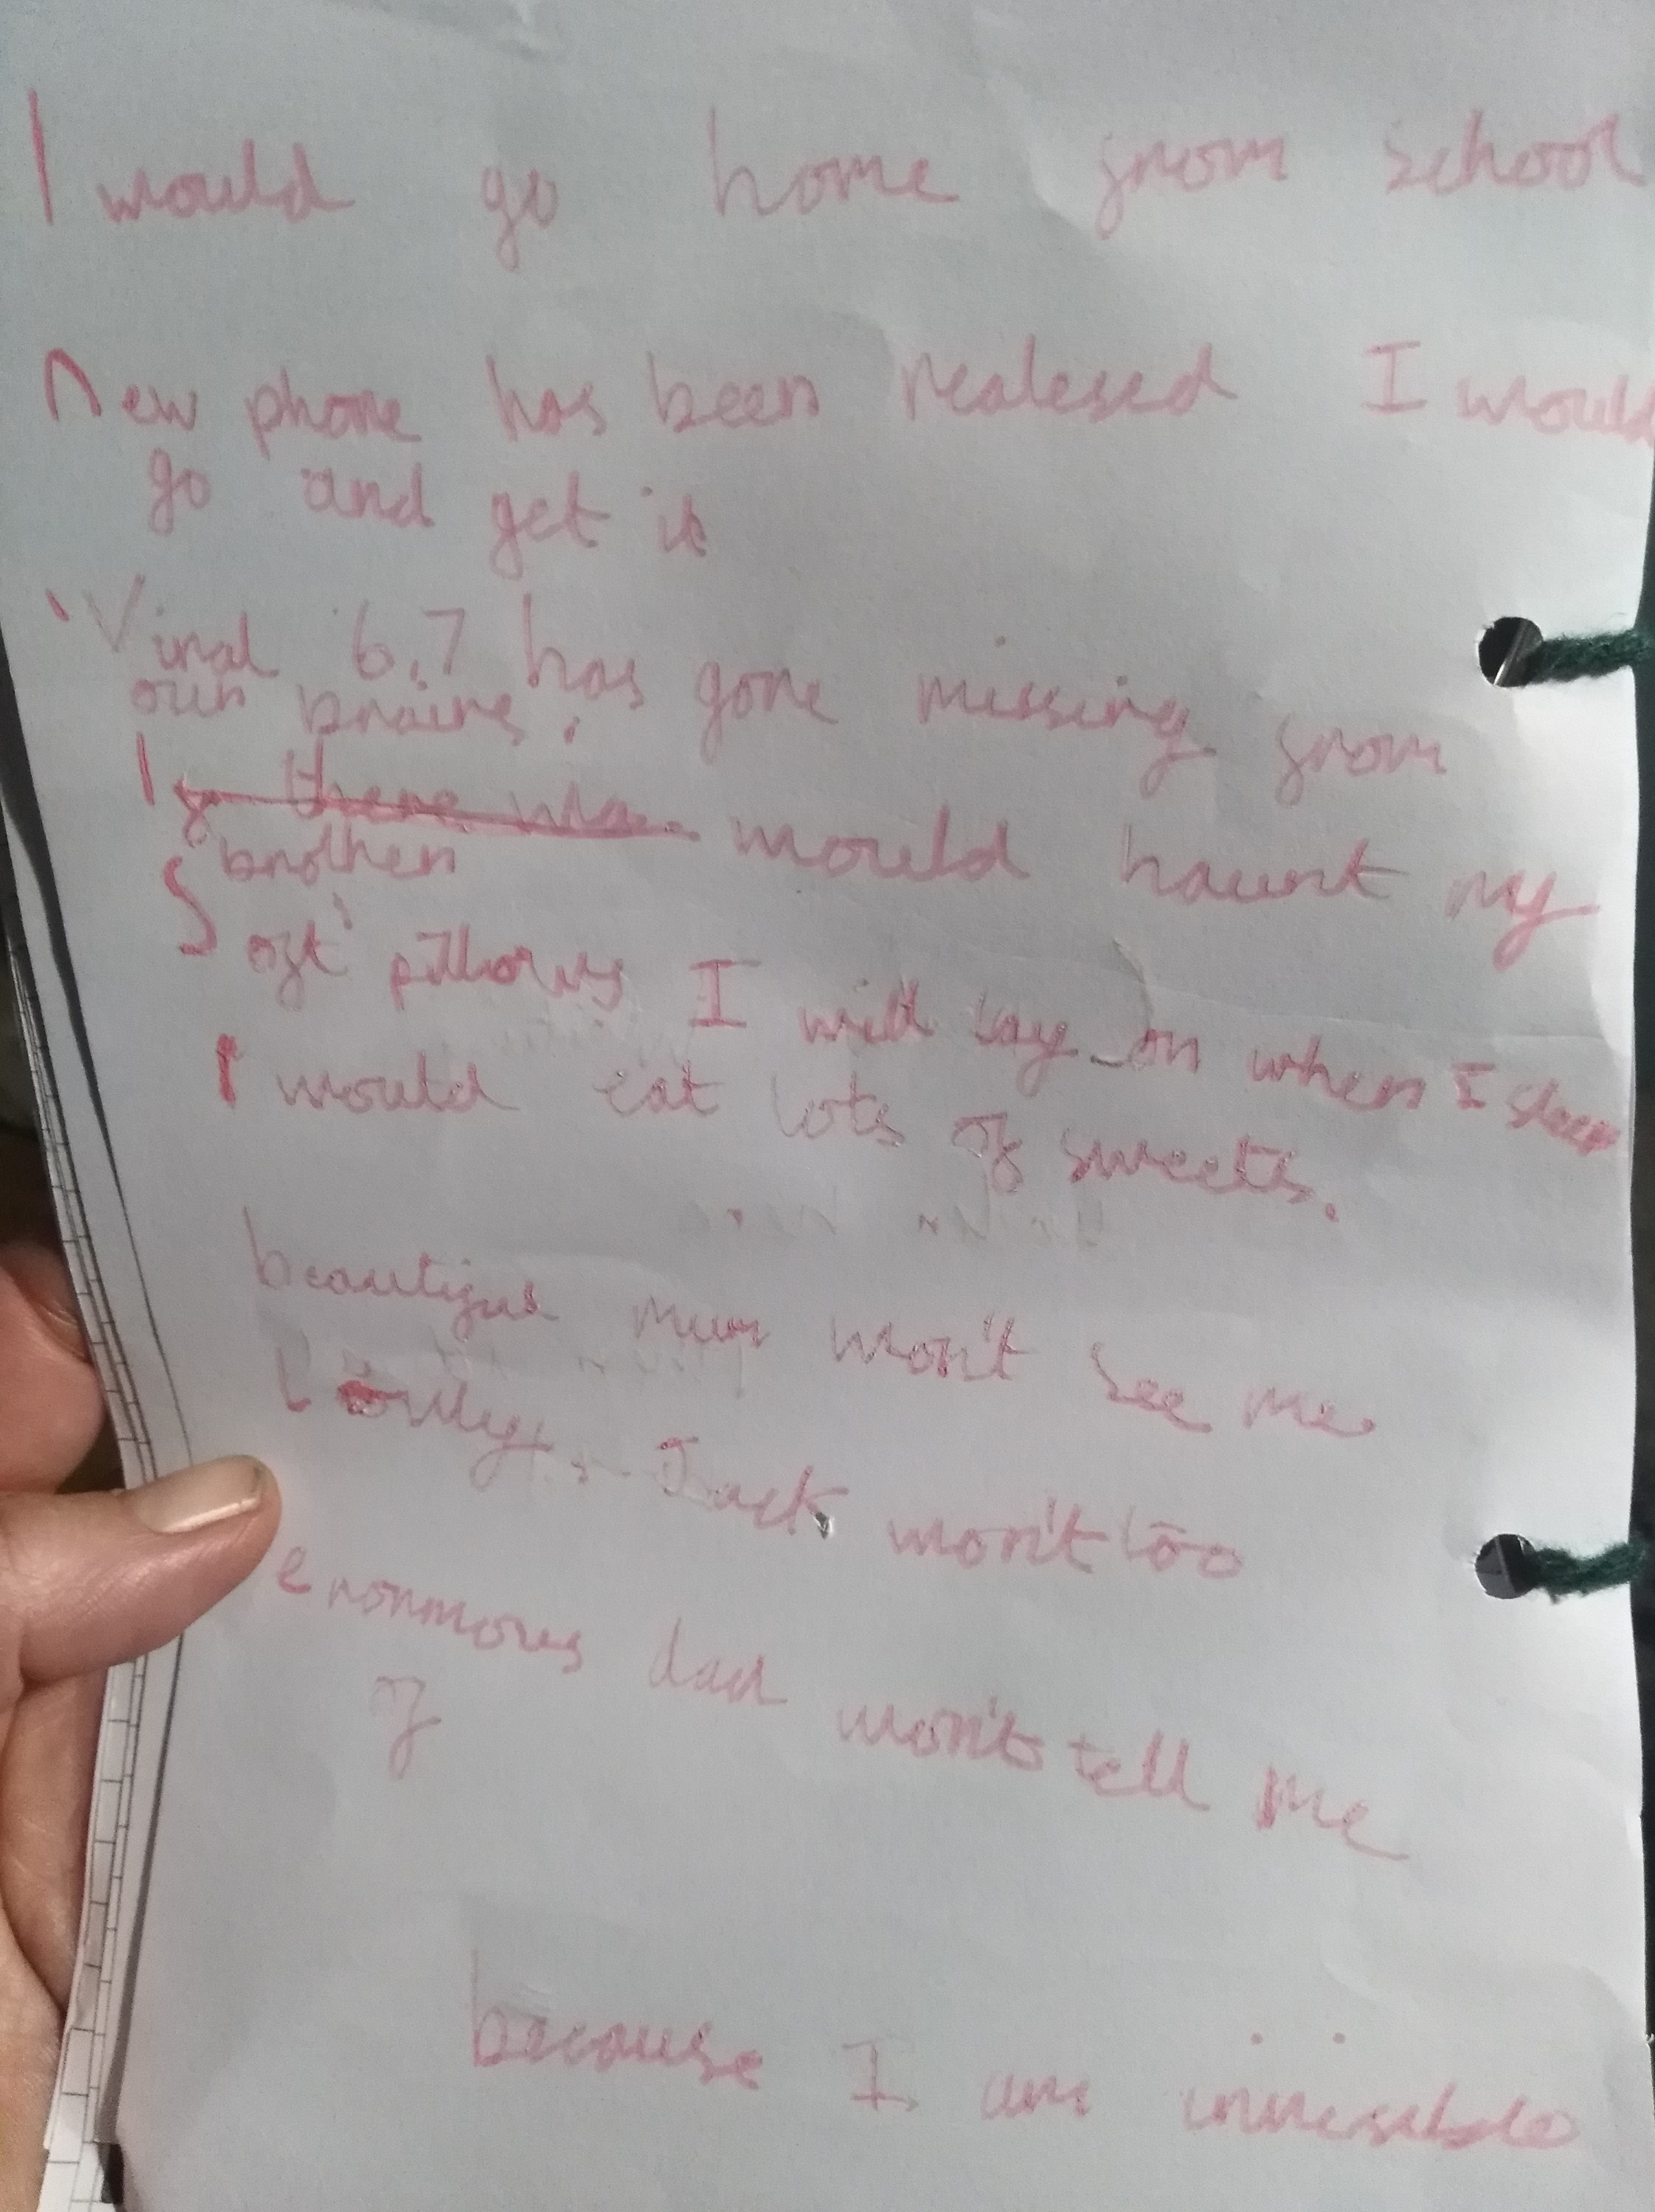 I would go home from school
New phone has been realesed I would
go and get it
Viral 6,7 has gone missing from
our brains.
I f there wa would haunt my
brother
Soft pillows I will lay on when I sleep
I would eat lots of sweets.
beautiful mum won't see me
Lovily, Jack won't too
enormous dad won't tell me
of
because I am invisable